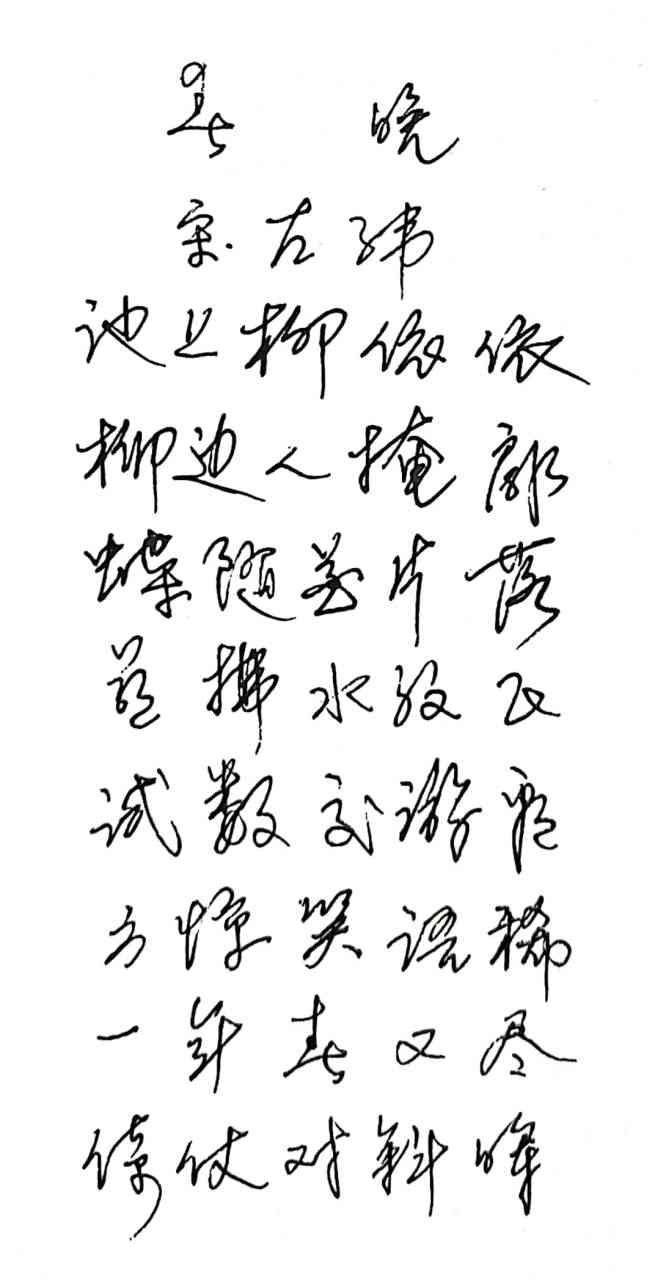 春 晚
宋·左纬
池上柳依依
柳边人掩扉
蝶随花片落
燕拂水纹飞
试数交游看
方惊笑语稀
一年春又尽
倚仗对斜晖